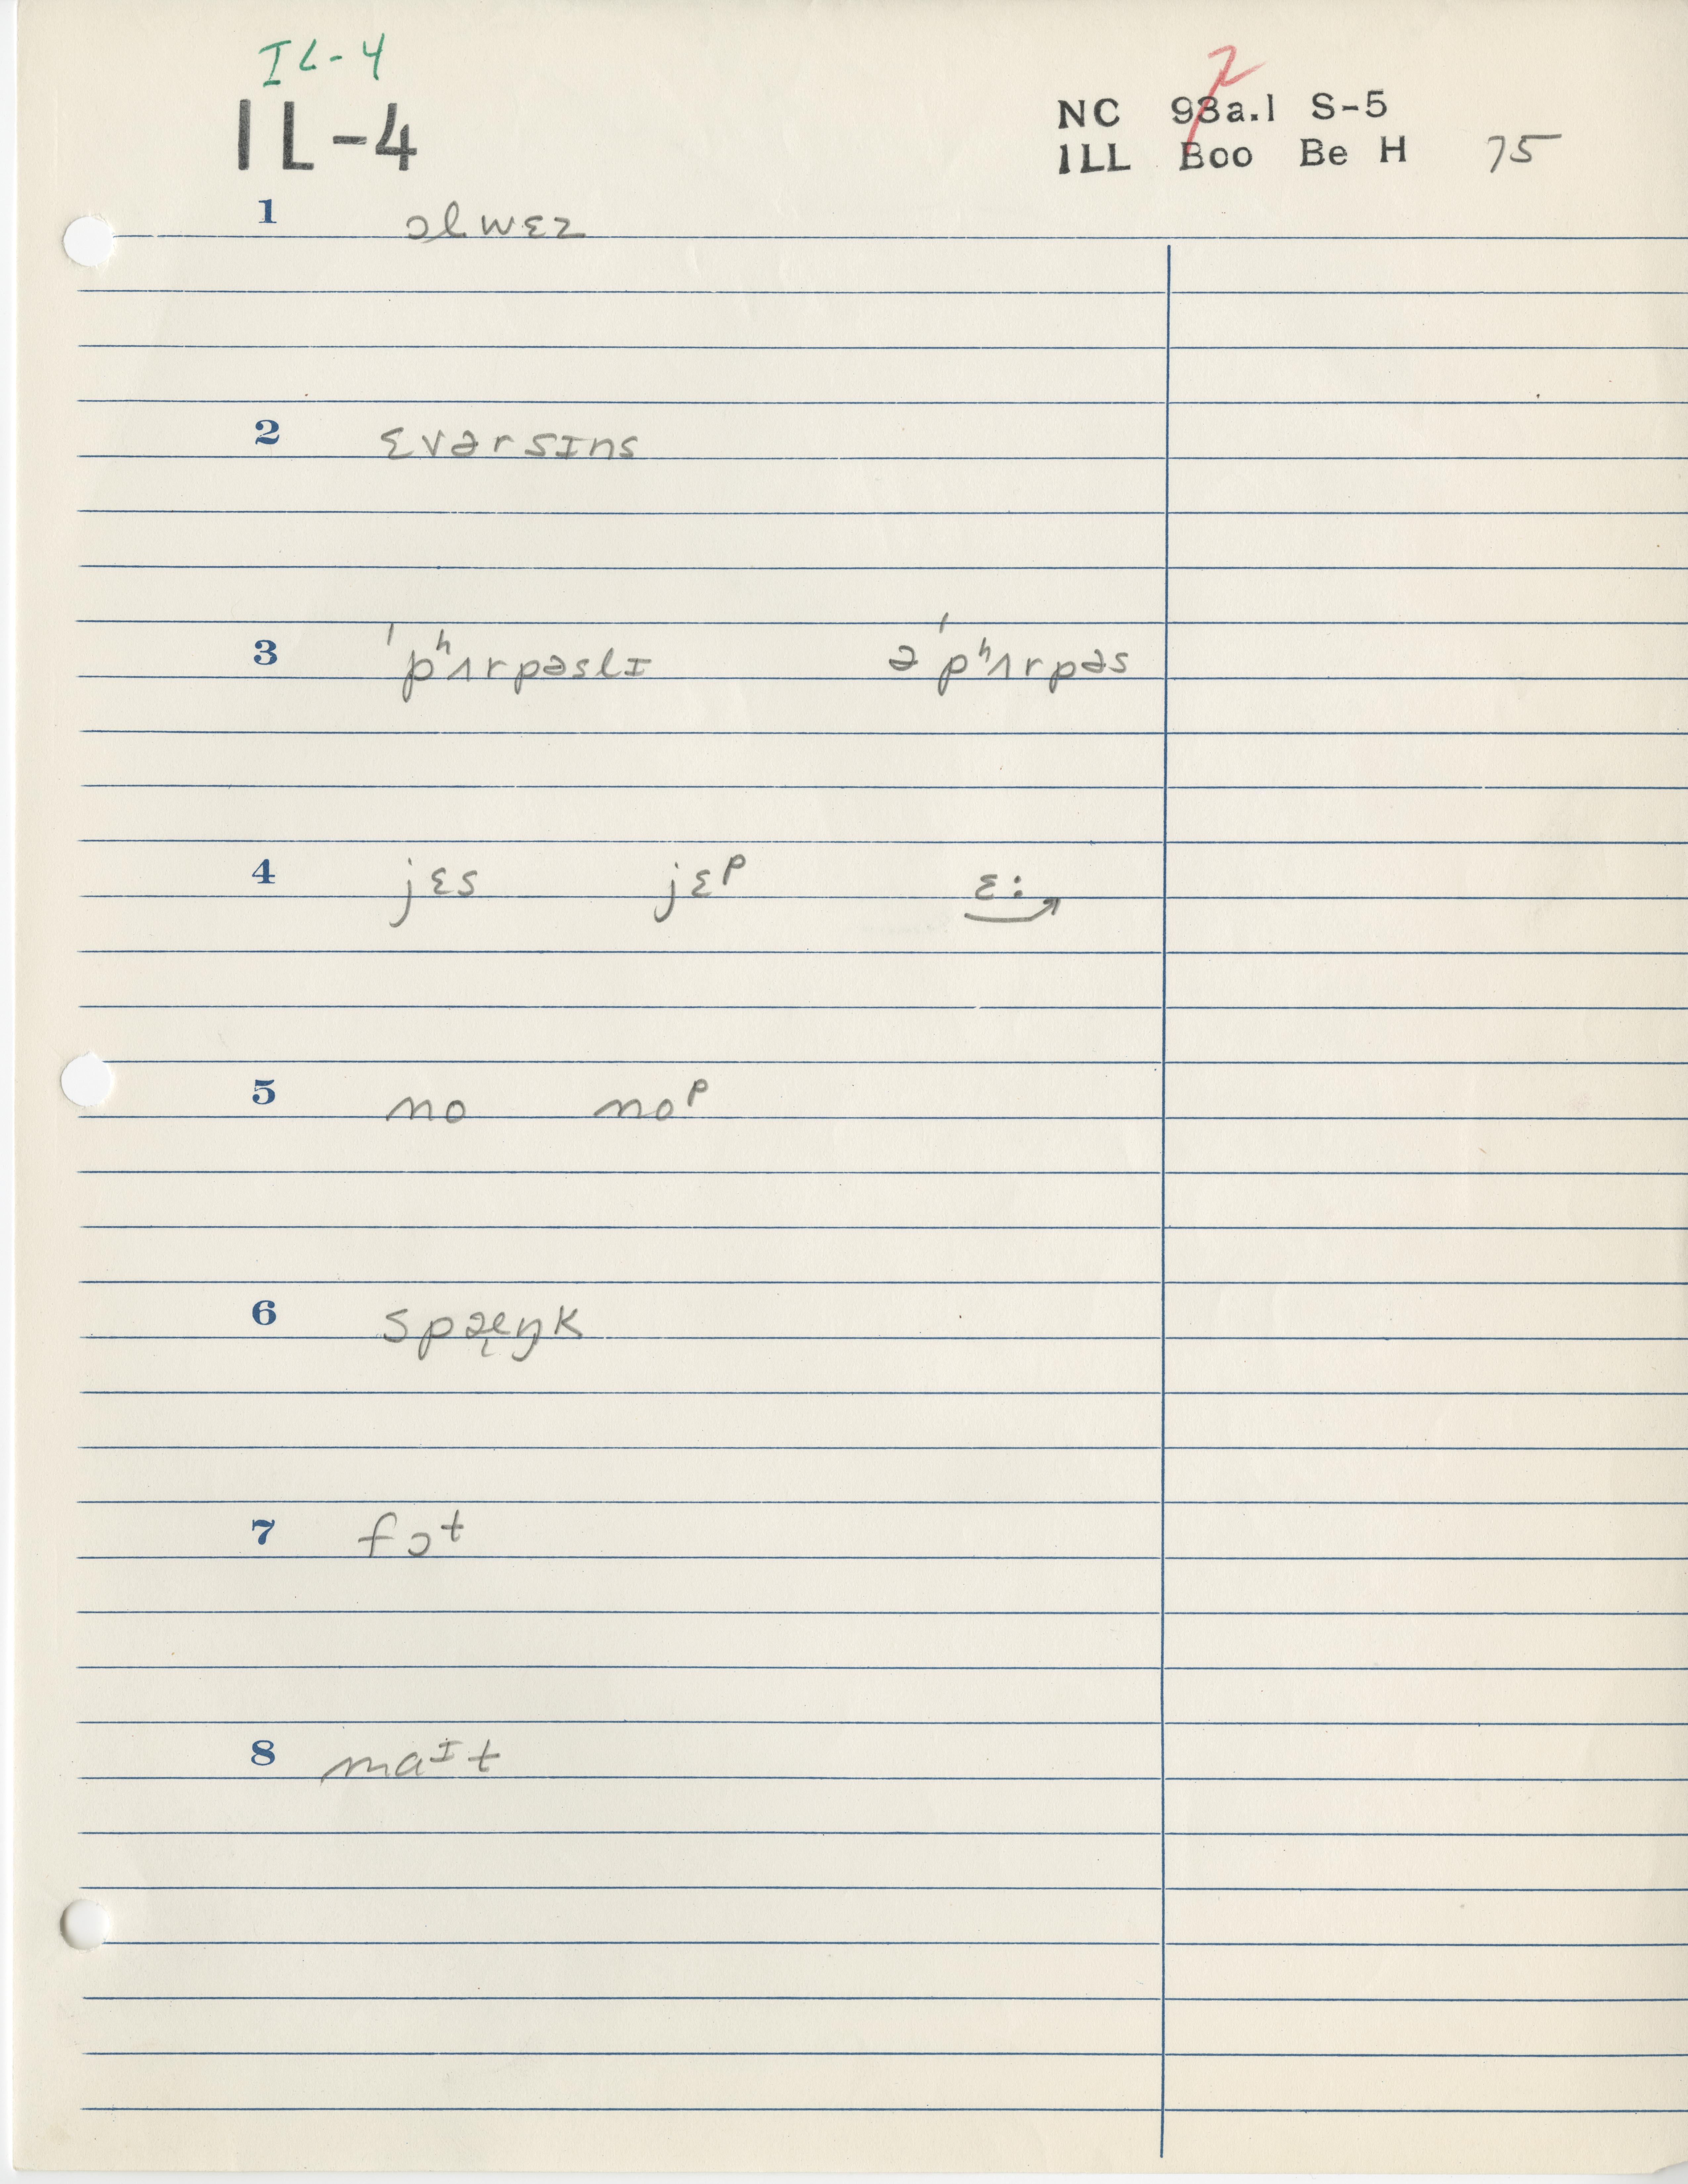 IL-4
IL-4
2
NC 93a.1 S-5
ILL Boo Be H 75
1 ɔlwɛz
2 ɛvərsɪns
3 ˈpʰʌrpəslɪ əˈpʰʌrpəs
4 jɛs jɛᵖ ɛː
5 no noᵖ
6 spæ̨ŋk
7 fɔᵗ
8 maᶦt